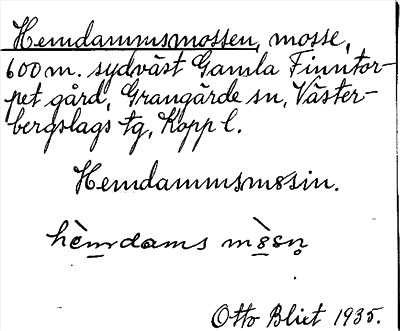 Hemdammsmossen, mosse,
600 m. sydväst Gamla Finntor-
pet gård, Grangärde sn, Väster-
bergslags tg, Kopp l.
Hemdammsmosin.
Otto Blixt 1935.